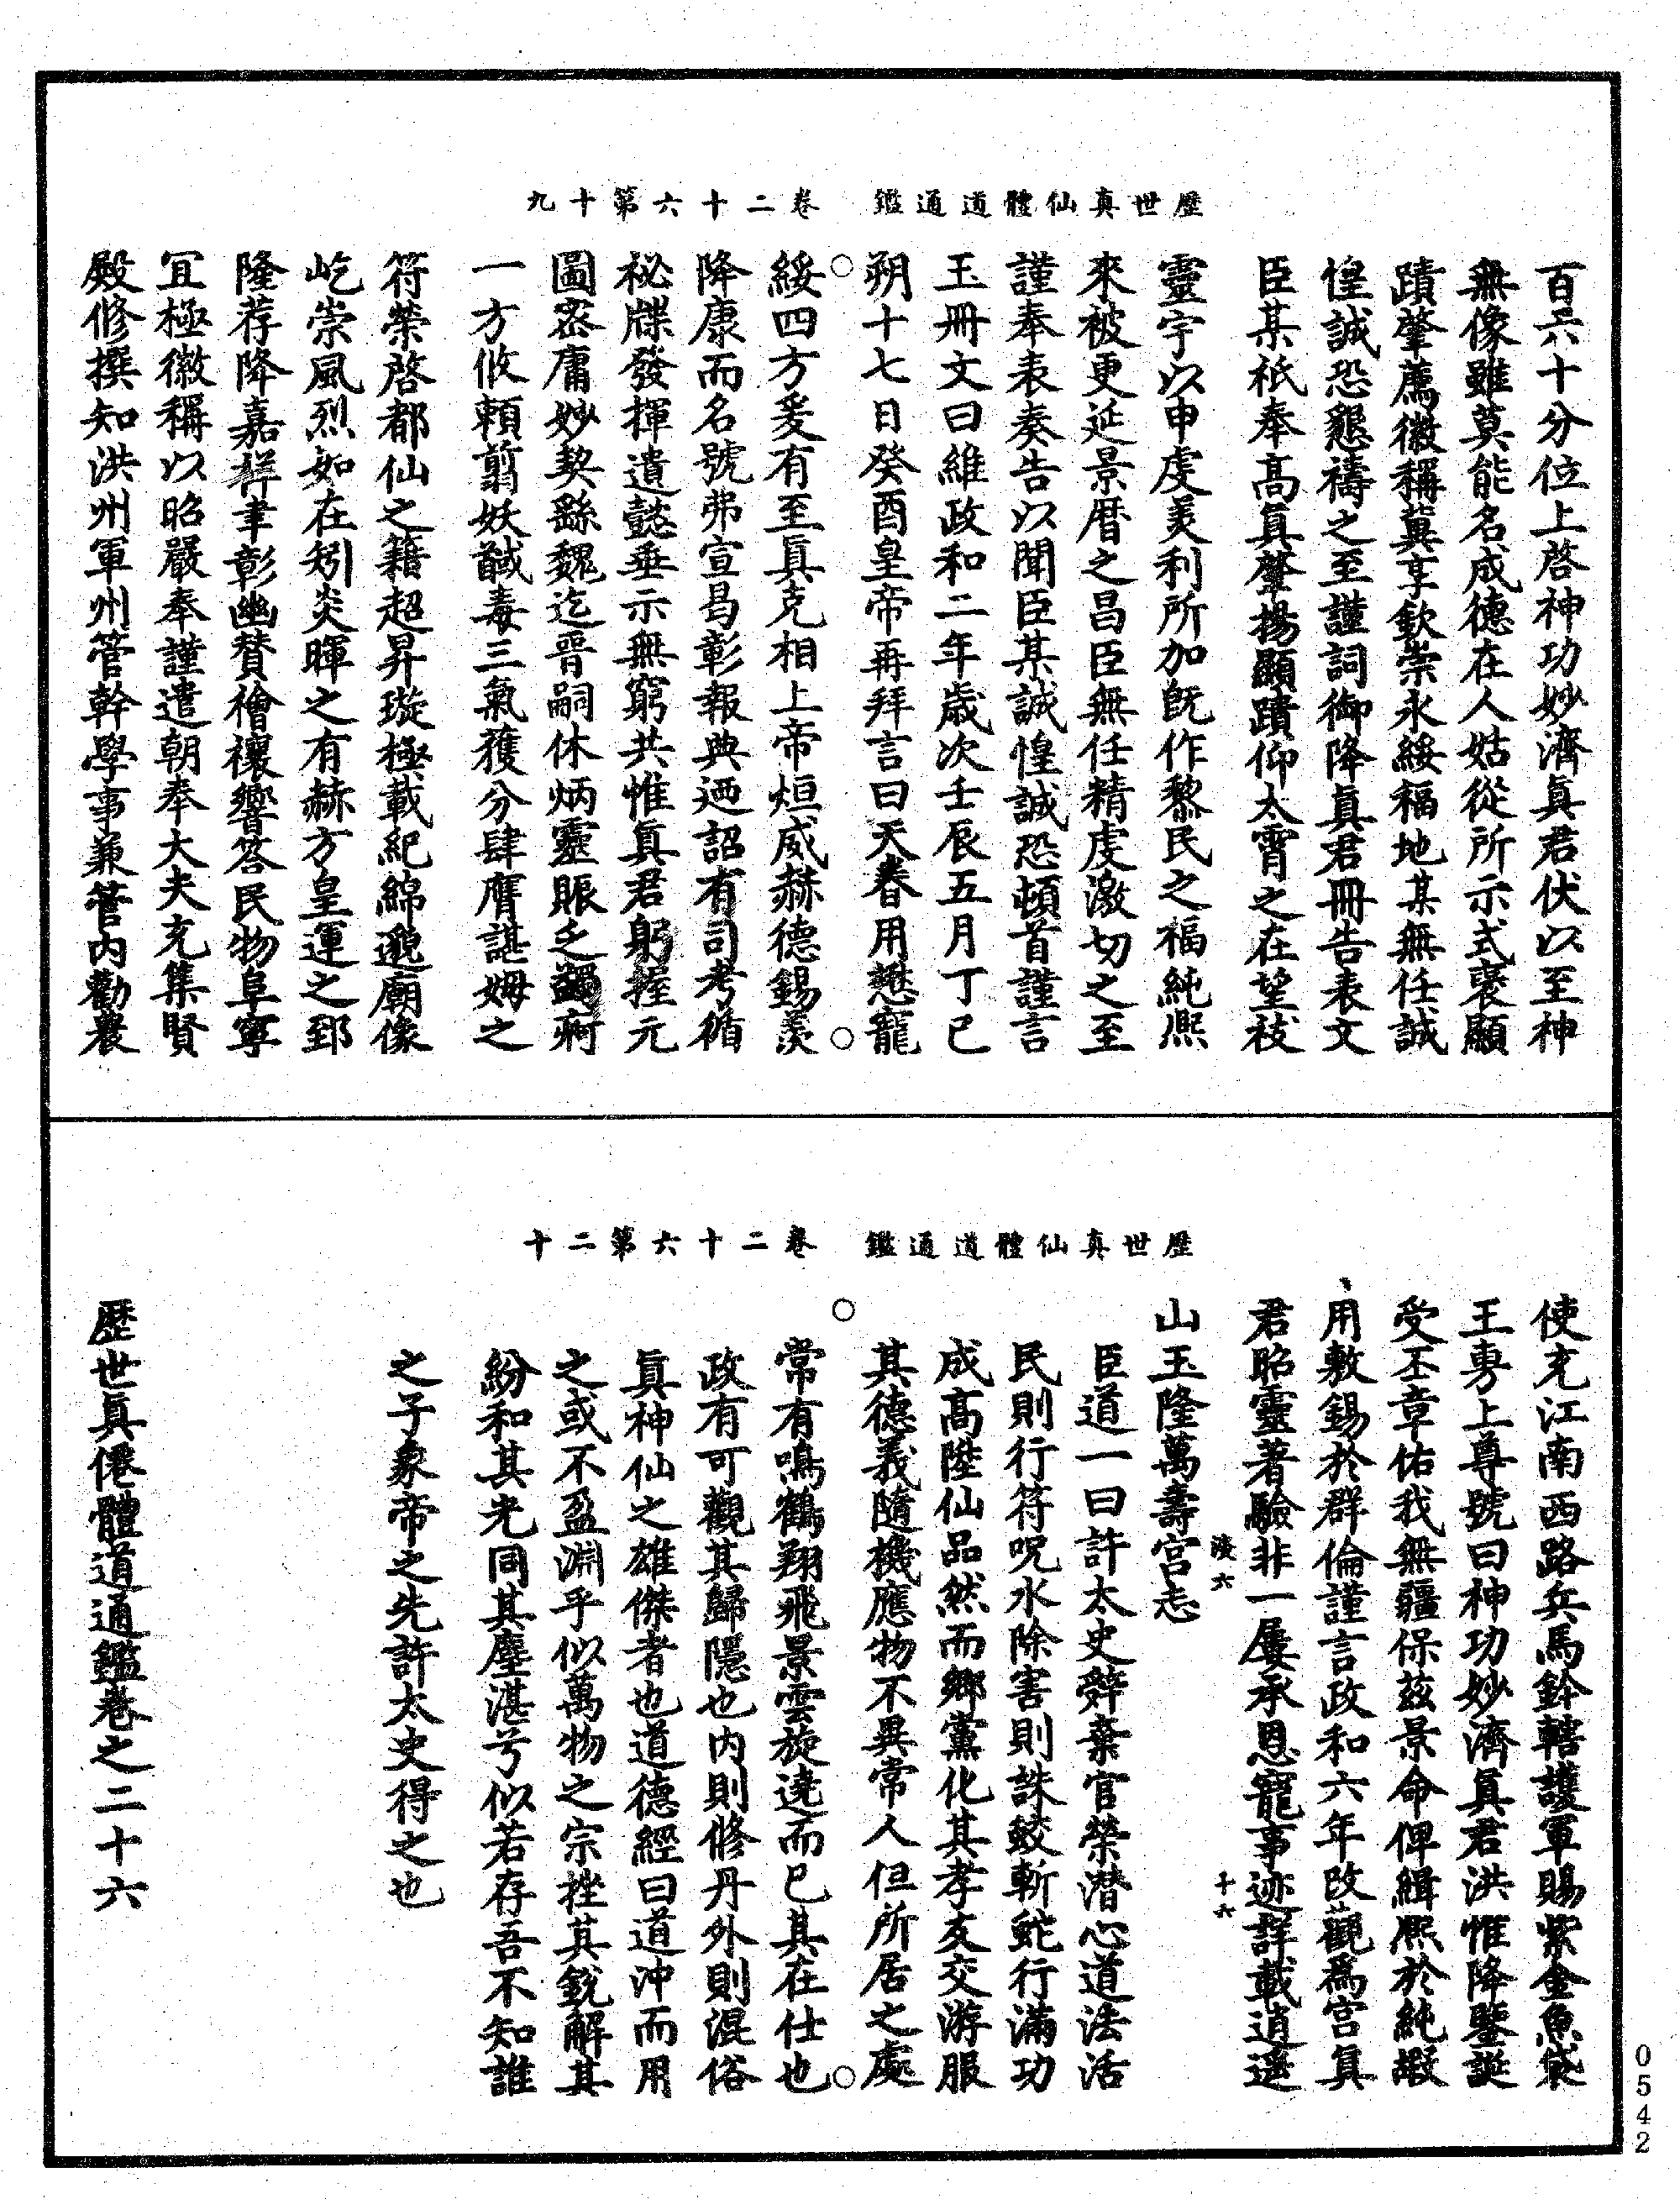 歷世真仙體道通鑑　卷二十六第十九
百六十分位上啓神功妙濟真君伏以至神
無像雖莫能名成德在人姑從所示式襃顯
蹟肇薦徽稱冀享欽崇永綏福地某無任誠
惶誠恐懇禱之至謹詞御降真君冊告表文
臣某祇奉高真肇揚顯蹟仰太霄之在望祓
靈宇以申虔羨利所加旣作黎民之福純熙
來被更延景曆之昌臣無任精虔激切之至
謹奉表奏告以聞臣某誠惶誠恐頓首謹言
玉冊文曰維政和二年歲次壬辰五月丁巳
朔十七日癸酉皇帝再拜言曰天眷用懋寵
綏四方爰有至真克相上帝烜威赫德錫羨
降康而名號弗宣曷彰報典迺詔有司考循
祕牒發揮遺懿垂示無窮共惟真君躬握元
圖密庸妙契繇魏迄晉嗣休炳靈賑乏蠲痾
一方攸賴翦妖馘毒三氣蒦分肆膺諶姆之
符榮啓都仙之籍超昇璇極載紀綿邈廟像
屹崇風烈如在矧炎暉之有赫方皇運之郅
隆荐降嘉祥聿彰幽贊禬禳響答民物阜寧
宜極徽稱以昭嚴奉謹遣朝奉大夫充集賢
殿修撰知洪州軍州管幹學事兼管內勸農
歷世真仙體道通鑑　卷二十六第二十
使充江南西路兵馬鈐轄護軍賜紫金魚袋
王專上尊號曰神功妙濟真君洪惟降鑒誕
受丕章佑我無疆保茲景命俾緝熙於純嘏
用敷錫於群倫謹言政和六年改觀為宮真
君昭靈著驗非一屢承恩寵事迹詳載逍遙
山玉隆萬壽宮志
臣道一曰許太史辤棄官榮潛心道法活
民則行符呪水除害則誅蛟斬蛇行滿功
成高陞仙品然而鄉黨化其孝友交游服
其德義隨機應物不異常人但所居之處
常有鳴鶴翔飛景雲旋遶而已其在仕也
政有可觀其歸隱也內則修丹外則混俗
真神仙之雄傑者也道德經曰道沖而用
之或不盈淵乎似萬物之宗挫其銳解其
紛和其光同其塵湛兮似若存吾不知誰
之子象帝之先許太史得之也
歷世真僊體道通鑑卷之二十六
0542